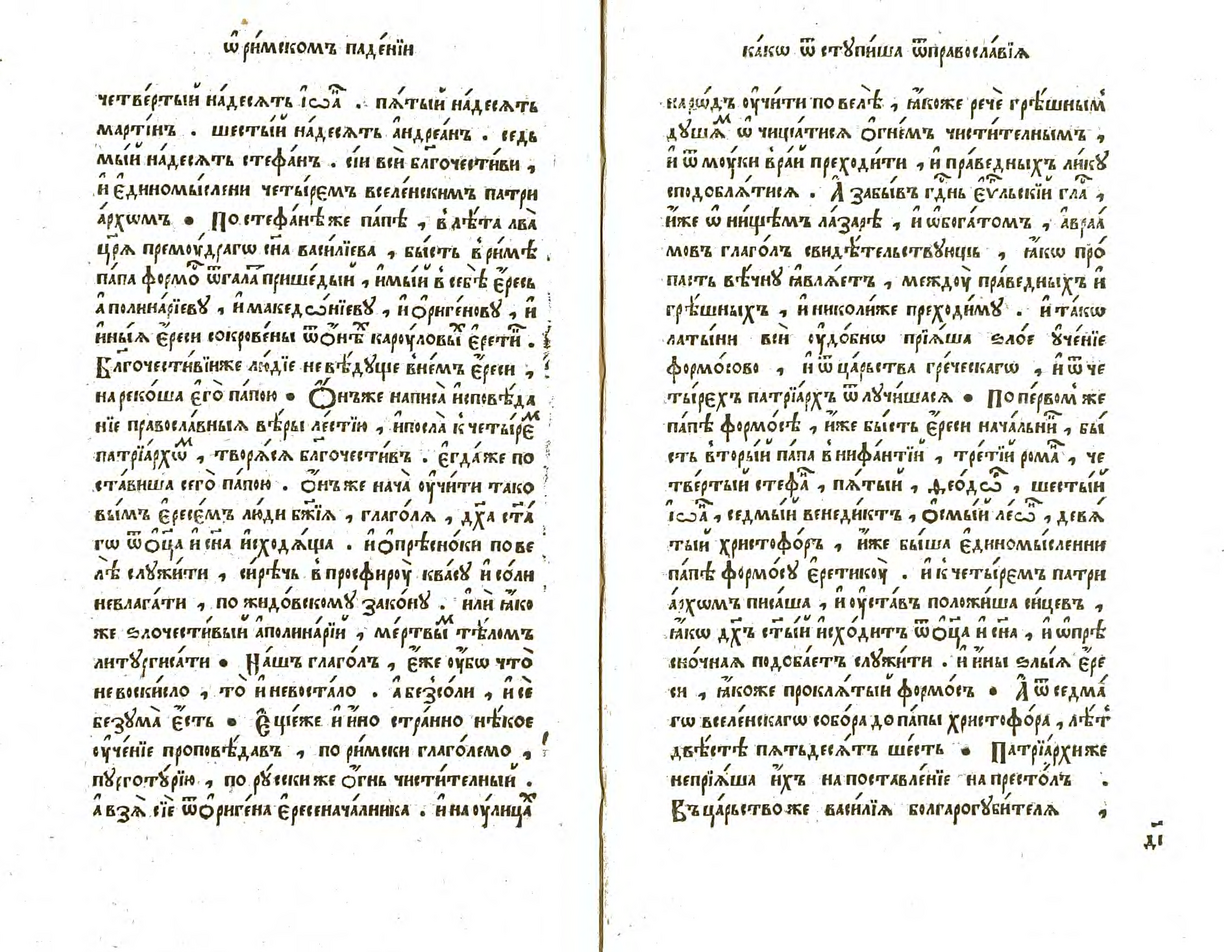 ѡ҆ ри́мскомъ паде́нїи
четве́ртый на́десѧть і҆ѡа҃ . пѧ́тый на́десѧть
марті́нъ . шесты́й на́десѧть а҆ндреа́нъ . седь
мы́й на́десѧть стефа́нъ . сі́и всѝ бл҃гочести́ви ,
и҆ є҆диномы́слени четы́remъ вселе́нскимъ патри
а́рхѡмъ • По стефа́нѣ же па́пѣ , в лѣ́та лва̀
цр҃ѧ̀ премоу́драгѡ сн҃а васи́лїева , бы́сть в ри́мѣ
па́па формо́ ѿ га́ла прише́дый , и҆мы́й в себѣ̀ є҆́ресь
а҆полина́рїеву , и҆ македѡ́нїеву , и҆ ѻ҆риге́нову , и҆
и҆ны́ѧ є҆́реси сокрове́ны ѿ ѻ҆нѣ́х кароу́ловы є҆рети́ .
Бл҃гочести́вїи же лю́дїе не вѣ́дуще в не́мъ є҆́реси ,
нареко́ша є҆го̀ па́пою • Ѻ҆́нъ же написа̀ и҆сповѣ́да
нїе правосла́вныѧ вѣ́ры ле́стїю , и҆ посла̀ к четы́ре
патрїа́рхѡм , творѧ́сѧ бл҃гочести́въ . є҆гда́ же по
ста́виша сего̀ па́пою . ѻ҆́нъ же нача̀ оу҆чи́ти тако
вы́мъ є҆ресе́мъ лю́ди бж҃їѧ , глаго́лѧ , дх҃а ст҃а́
гѡ ѿ ѻ҆ц҃а̀ и҆ сн҃а и҆сходѧ́ща . и҆ ѻ҆прѣсно́ки пове
лѣ̀ служи́ти , си́рѣчь в просфироу̀ ква́су и҆ со́ли
не влага́ти , по жидо́вскому зако́ну . и҆лѝ ꙗ҆́ко
же ѕлочести́вый а҆полина́рїй , ме́ртвым тѣ́ломъ
литургиса́ти • На́шъ глаго́лъ , є҆́же оу҆́бѡ что̀
не воски́сло , то̀ и҆ не воста́ло . а҆ без со́ли , и҆ сѐ
без ума̀ є҆́сть • Є҆ще́же и҆ и҆́но стра́нно нѣ́кое
оу҆че́нїе проповѣ́давъ , по ри́мски глаго́лемо ,
пурготу́рїю , по ру́сски же ѻ҆́гнь чисти́телный .
а҆ взѧ̀ сїѐ ѿ ѻ҆риге́на є҆ресенача́лника . и҆ на оу҆́лицах
ка́кѡ ѿступи́ша ѿ правосла́вїѧ
наро́дъ оу҆чи́ти повелѣ̀ , ꙗ҆́коже речѐ грѣ́шным
душѧ́м ѡ҆чища́тисѧ ѻ҆гне́мъ чисти́телнымъ ,
и҆ ѿ моу́ки в ра́й преходи́ти , и҆ пра́ведныхъ ли́ку
сподоблѧ́тисѧ . А҆ забы́въ гд҃нь є҆ѵ҃льскїй гла ,
и҆́же ѡ҆ ни́щѣмъ ла́зарѣ , и҆ ѡ҆ бога́томъ , а҆враа́
мовъ глаго́лъ свидѣ́тельствующь , ꙗ҆́кѡ про́
пасть вѣ́чну ꙗ҆влѧ́етъ , междоу̀ пра́ведныхъ и҆
грѣ́шныхъ , и҆ николи́же преходи́му . и҆ та́кѡ
латы́ни всѝ оу҆до́бнѡ прїѧ́ша ѕло́е уче́нїе
формо́сово , и҆ ѿ ца́рьства гре́ческагѡ , и҆ ѿ че
ты́рехъ патрїа́рхъ ѿлучи́шасѧ • По пе́рвом же
па́пѣ формо́сѣ , и҆́же бы́сть є҆́реси нача́льни , бы́
сть вторы́й па́па внифа́нтїй , тре́тїй рома , че
тве́ртый стефа , пѧ́тый , ѳео́дѡ , шесты́й
і҆ѡа , седмы́й венеди́ктъ , ѻ҆смы́й ле́ѡ , девѧ́
тый христофо́ръ , и҆́же бы́ша є҆диномы́сленни
па́пѣ формо́су є҆ретикоу̀ . и҆ к четы́remъ патри
а́рхомъ писа́ша , и҆ оу҆ста́въ положи́ша си́цевъ ,
ꙗ҆́кѡ дх҃ъ ст҃ы́й и҆схо́дитъ ѿ ѻ҆ц҃а̀ и҆ сн҃а , и҆ ѡ҆прѣ
сно́чнаѧ подоба́етъ служи́ти . и҆ и҆́ны ѕлы́ѧ є҆́ре
си , ꙗ҆́коже проклѧ́тый формо́съ • А҆ ѿ седма́
гѡ вселе́нскагѡ собо́ра до па́пы христофо́ра , лѣ́т
двѣ́стѣ пѧтьдесѧ́тъ ше́сть • Патрїа́рхи же
не прїѧ́ша и҆́хъ на поставле́нїе на престо́лъ .
Въ ца́рьство же васи́лїѧ болгарогуби́телѧ ,
д҃і